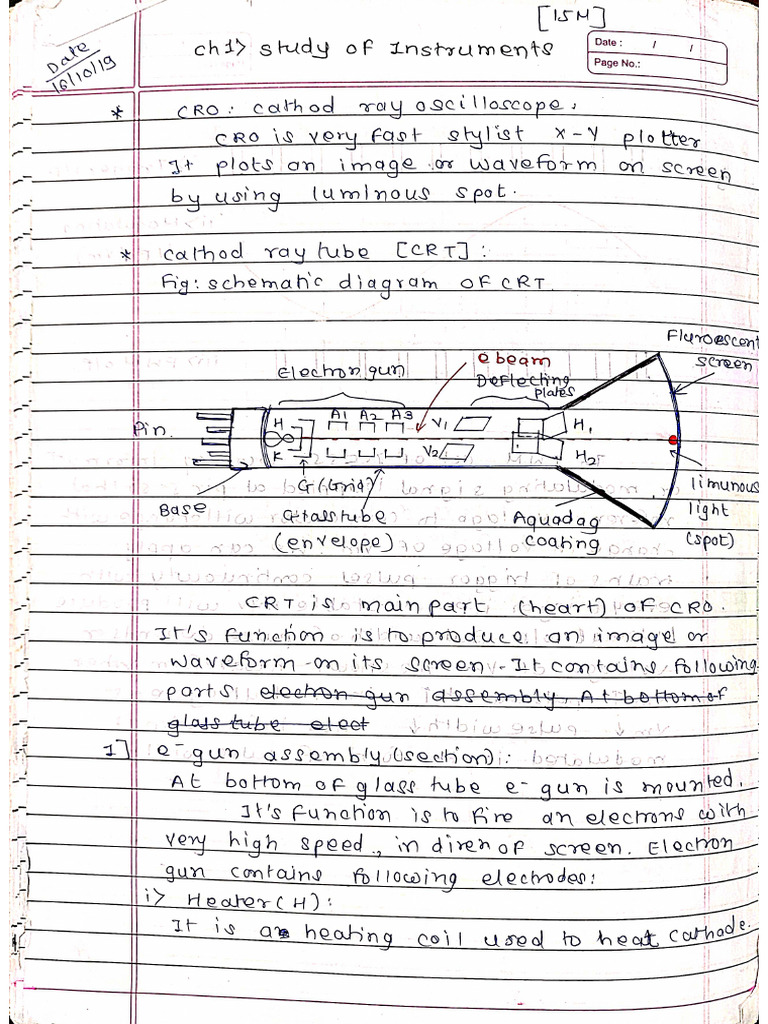 [15M]
Date
16/10/19
ch1> study of Instruments
Date : / /
Page No.:
* CRO: cathod ray oscilloscope:
CRO is very fast stylist X-Y plotter
It plots an image or waveform on screen
by using luminous spot.
* cathod ray tube [CRT]:
Fig: schematic diagram of CRT.
Fluroescent
screen
e beam
Electron gun
Deflecting
plates
A1 A2 A3
H
V1
H1
Pin.
K
V2
H2
G(Grid)
limunous
light
(spot)
Base
Glasstube
(envelope)
Aquadag
coating
CRT is main part (heart) of CRO.
It's function is to produce an image or
waveform on its screen. It contains following
parts electron gun assembly, At bottom of
glass tube elect
1] e- gun assembly (section):
At bottom of glass tube e- gun is mounted.
It's function is to fire an electrons with
very high speed, in diren of screen. Electron
gun contains following electrodes:
i> Heater (H):
It is a heating coil used to heat cathode.